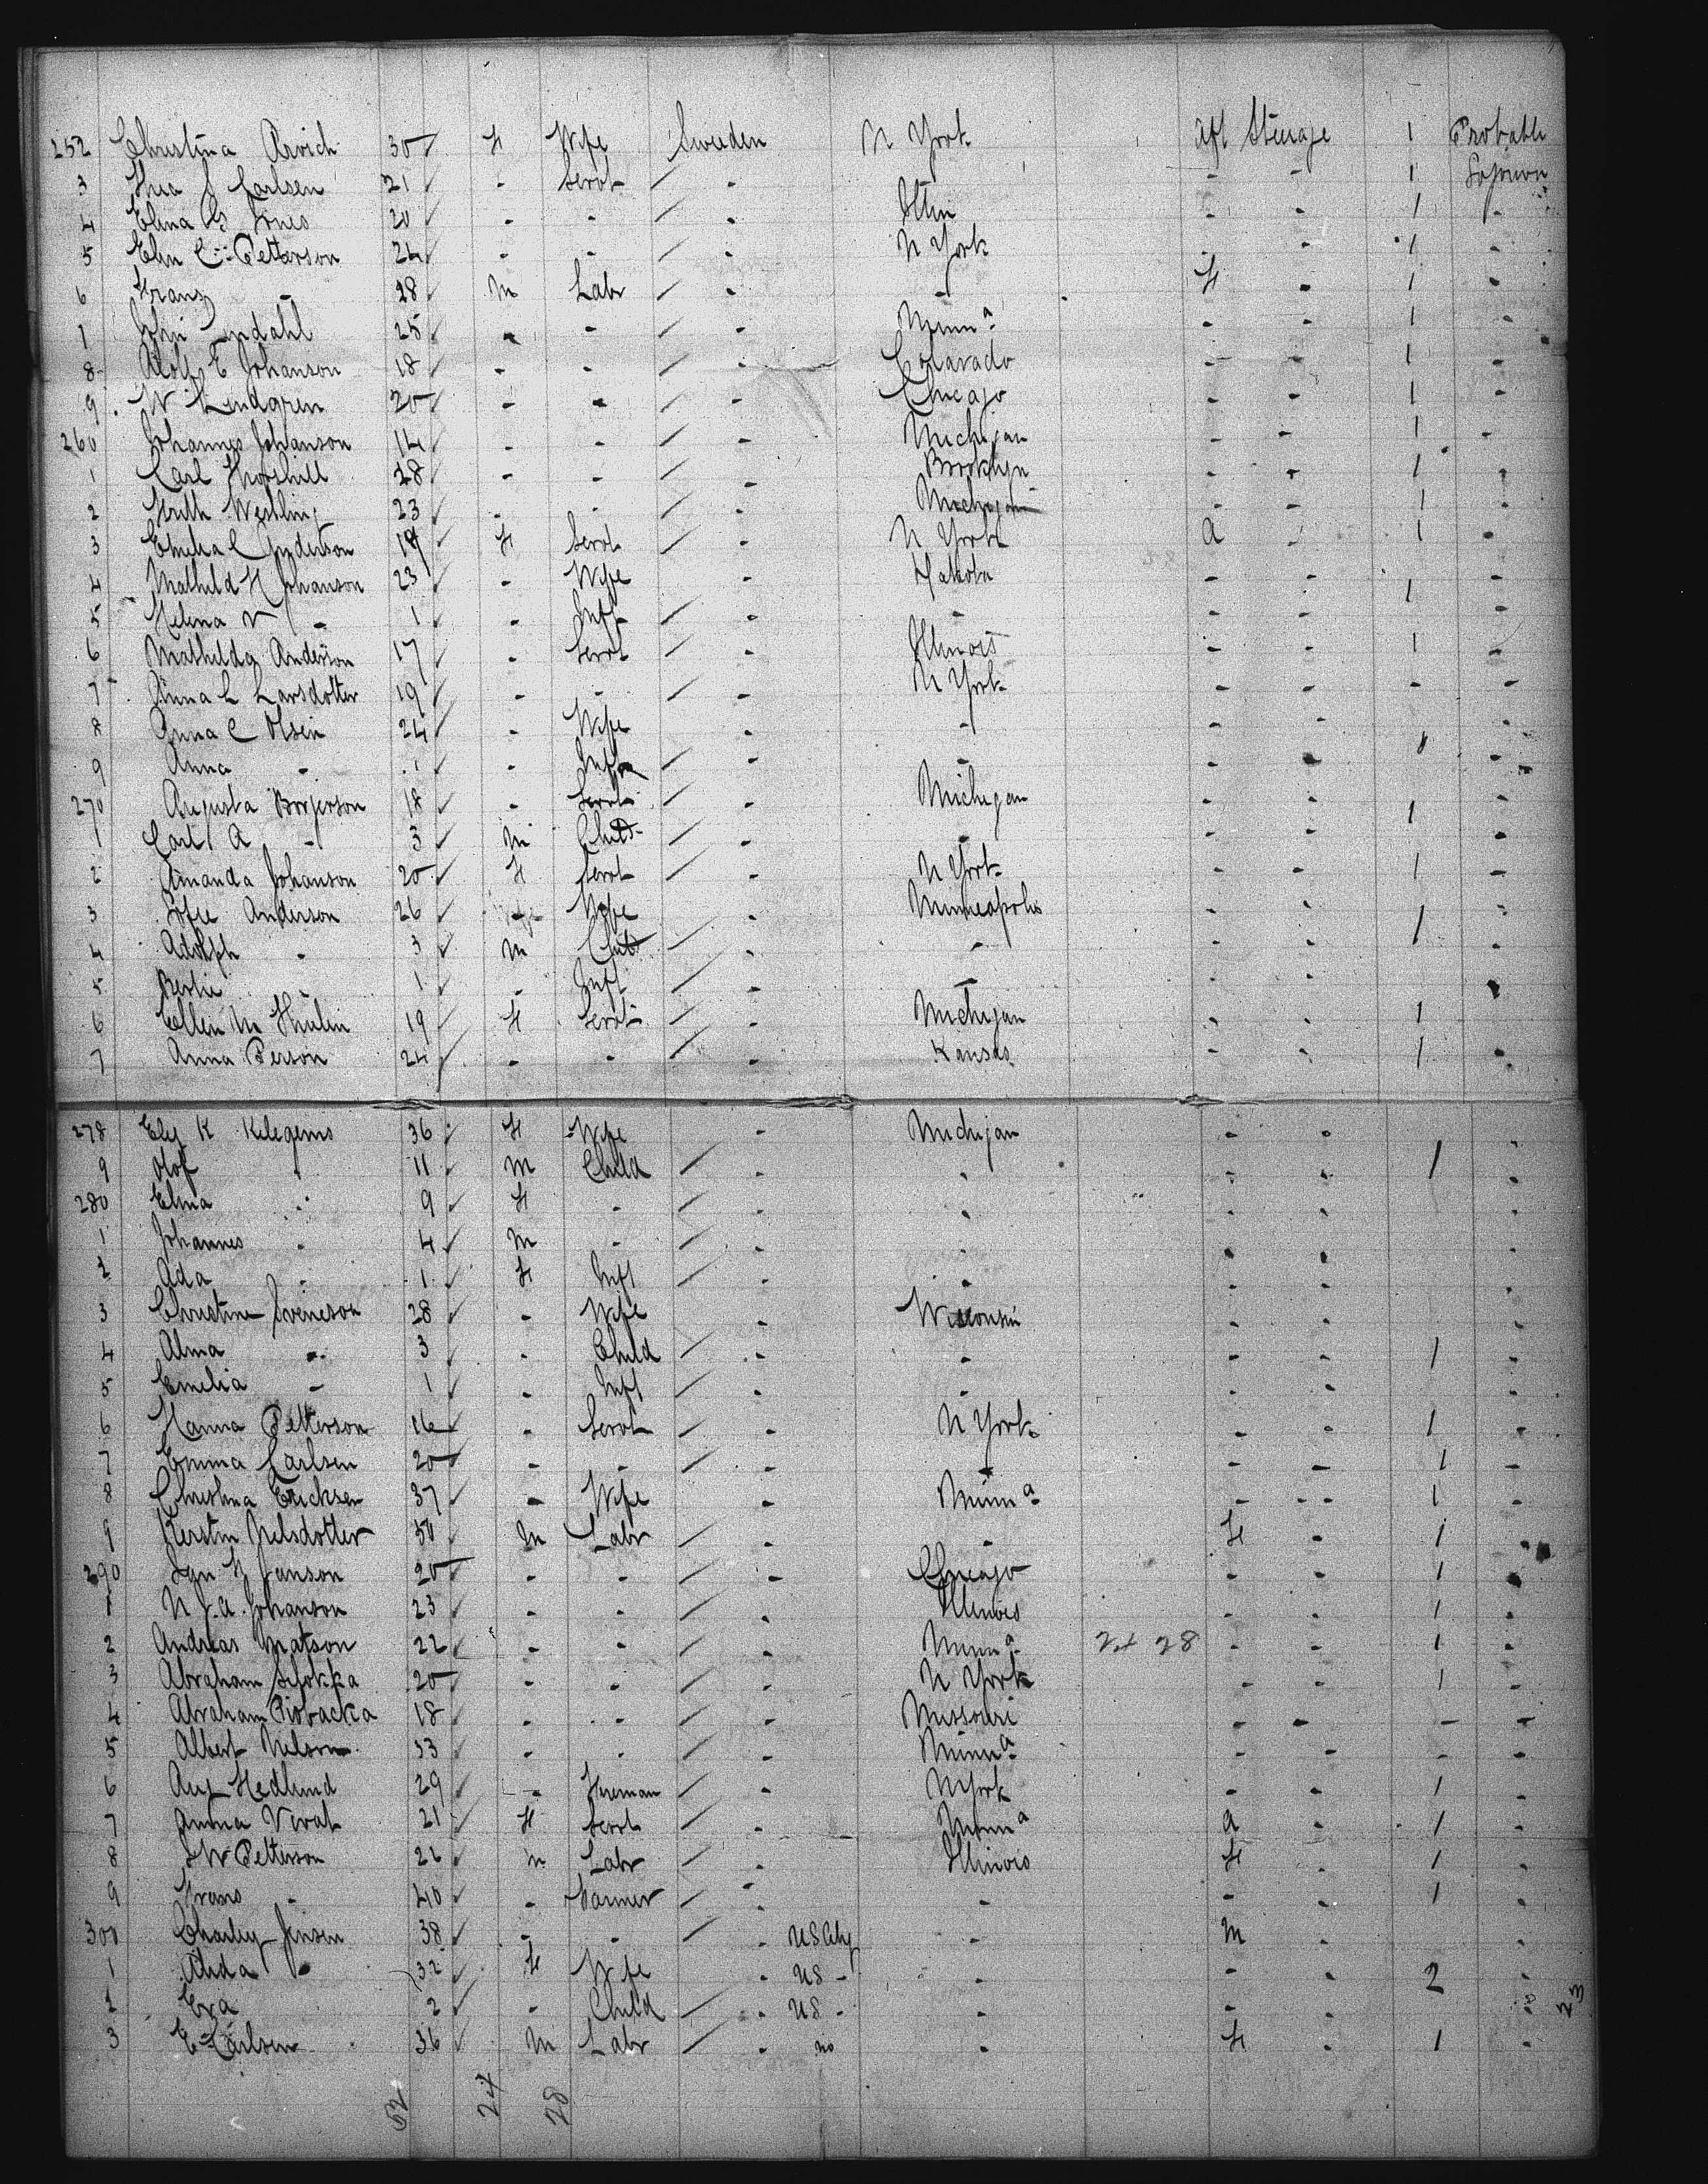 252 Christina Arvich 30 F Wife Sweden N York Aft Steerage 1 Probable
3 Carlsen 21 - Servt / - - - 1 Sojourn
4 Elina Jones 20 - - / - Illin - - 1 -
5 Elin C Petterson 24 - - / - N York - - 1 -
6 Franz - 28 M Labr / - - F - 1 -
7 John 25 - - / - Minna - - 1 -
8 E Johanson 18 - - / - Colarado - - 1 -
9 W Lindgren 20 - - / - Chicago - - 1 -
260 Johannes Johanson 14 - - / - Michigan - - 1 -
1 Carl 28 - - / - Brooklyn - - 1 -
2 Westling 23 - - / - Michigan - - 1 -
3 Emelia C Anderson 19 F Servt / - N York A - 1 -
4 Mathild H Johanson 23 - Wife Dakota - - 1 -
5 Helena V - 1 - Inft / - - - - -
6 Mathilda Anderson 17 - Servt / - Illinois - - 1 -
7 Anna L Larsdotter 19 - - / - N York - - - -
8 Anna C Olsen 24 - Wife - - - - 1 -
9 Anna - 1 - Inft / - - - - -
270 Augusta Borjerson 18 - Servt / - Michigan - - 1 -
1 Carl A - 3 M Child / - - - - -
2 Amanda Johanson 20 F Servt / - N York - - 1 -
3 Sofie Anderson 26 - Wife - Minneapolis - - 1 -
4 Adolph - 3 M Child / - - - - -
5 - 1 - Inft / - - - -
6 Ellen M 19 F Servt / - Michigan - - 1 -
7 Anna Person 24 - - / - Kansas - - 1 -
278 K 36 F Wife - Michigan - - 1 -
9 Olof - 11 M Child / - - - - -
280 Elina - 9 F - / - - - - -
1 Johannes - 4 M - / - - - - -
2 Ada - 1 F Inft / - - - - -
3 Christine Sveneson 28 - Wife - Wisconsin - - -
4 Alma - 3 - Child / - - - - 1 -
5 Emelia - 1 - Inft / - - - - -
6 Hanna Petterson 16 - Servt / - N York - - 1 -
7 Emma Carlsen 20 - - / - - - - 1 -
8 Christina Ericksen 37 - Wife - Minna - - 1 -
9 Kerstin Nelsdotter M Labr / - - F - 1 -
290 Janson 20 - - / - Chicago - - 1 -
1 N J. A. Johanson 23 - - / - Illinois - - 1 -
2 Andreas Matson 22 - - / - Minna 24 28 - - 1 -
3 Abraham 20 - - / - N York - - 1 -
4 Abraham 18 - - / - Missouri - - - -
5 Albert Nelson - - / - Minna - - - -
6 Aug Hedlund 29 - Fireman / - N York - - 1 -
7 Anna 21 F Servt / - Minna A - 1 -
8 Petterson 26 M Labr / - Illinois F - 1 -
9 Frans - 40 - Farmer / - - - - 1 -
300 Charley Jensen 38 - - / - - M -
1 Alida 32 F Wife - US - - - - 2 -
2 Eva 2 - Child / - US - - - - -
3 E Carlsen 36 M Labr / - no - F - 1 -
23
52 24 28